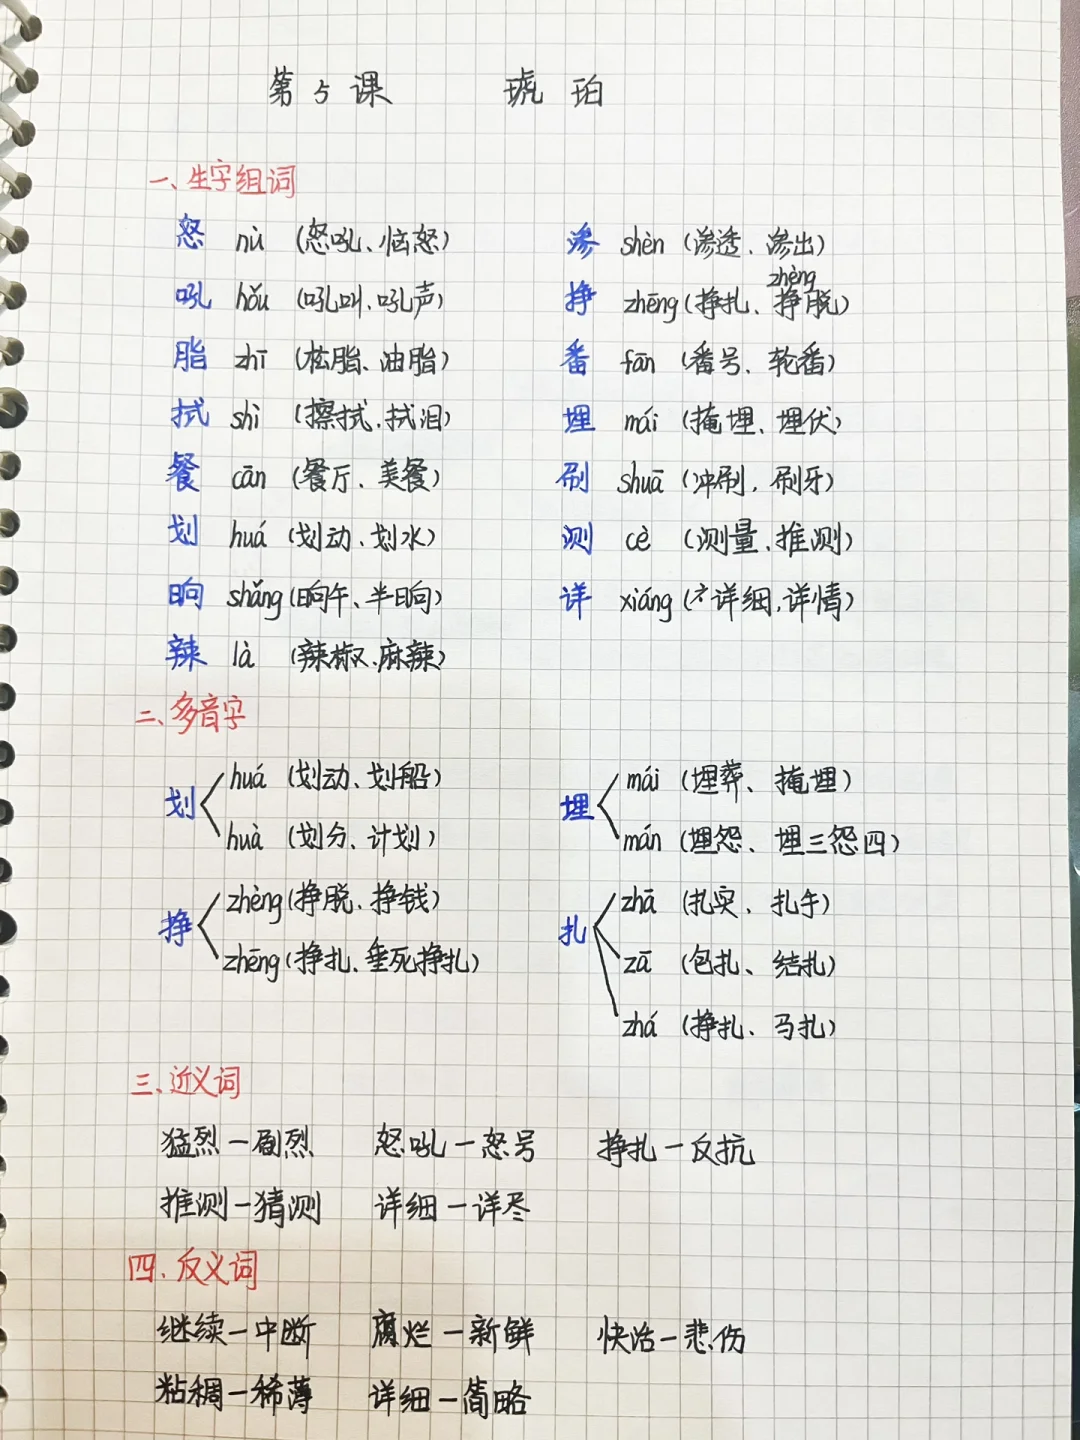 第5课 琥珀
一、生字组词
怒 nù (怒吼、恼怒) 渗 shèn (渗透、渗出)
zhèng
吼 hǒu (吼叫、吼声) 挣 zhēng (挣扎、挣脱)
脂 zhī (松脂、油脂) 番 fān (番号、轮番)
拭 shì (擦拭、拭泪) 埋 mái (掩埋、埋伏)
餐 cān (餐厅、美餐) 刷 shuā (冲刷、刷牙)
划 huá (划动、划水) 测 cè (测量、推测)
晌 shǎng (晌午、半晌) 详 xiáng (详细、详情)
辣 là (辣椒、麻辣)
二、多音字
划 huá (划动、划船) 埋 mái (埋葬、掩埋)
huà (划分、计划) mán (埋怨、埋三怨四)
挣 zhèng (挣脱、挣钱) 扎 zhā (扎实、扎手)
zhēng (挣扎、垂死挣扎) zā (包扎、结扎)
zhá (挣扎、马扎)
三、近义词
猛烈—剧烈 怒吼—怒号 挣扎—反抗
推测—猜测 详细—详尽
四、反义词
继续—中断 腐烂—新鲜 快活—悲伤
粘稠—稀薄 详细—简略